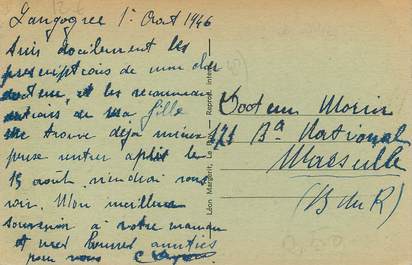 Langogne 1er Aout 1946
Suis docilement les
prescriptions de mon cher
docteur, et les recomman
dations de ma fille
me trouve déjà mieux
pense rentrer après le
15 août, viendrai vous
voir. Mon meilleur
souvenir à votre maman
et mes bonnes amitiés
pour vous
Léon Margerit, Le Reprod. Inter
Docteur
Bd National
Marseille
(B du R)